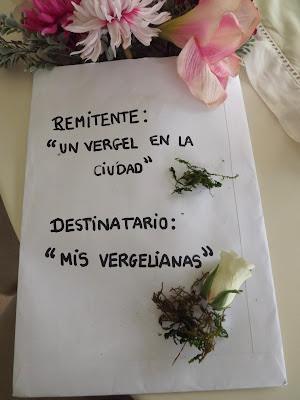 REMITENTE:
"UN VERGEL EN LA
CIUDAD"
DESTINATARIO:
"MIS VERGELIANAS"